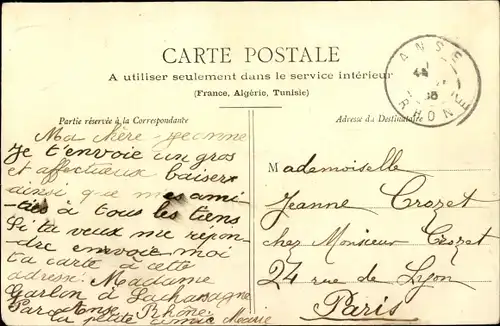 CARTE POSTALE
A utiliser seulement dans le service intérieur
(France, Algérie, Tunisie)
Partie réservée à la Correspondante
Adresse du Destinataire
ANSE
RHONE
Ma chère Jeanne
Je t'envoie un gros
et affectueux baiser
ainsi que mes ami-
tiés à tous les tiens
Si tu veux me répon-
dre envoie moi
ta carte à cette
adresse: Madame
Garlon à Lachassagne
Par Anse Rhône
ta petite amie Marie
Mademoiselle
Jeanne Crozet
chez Monsieur Crozet
24 rue de Lyon
Paris